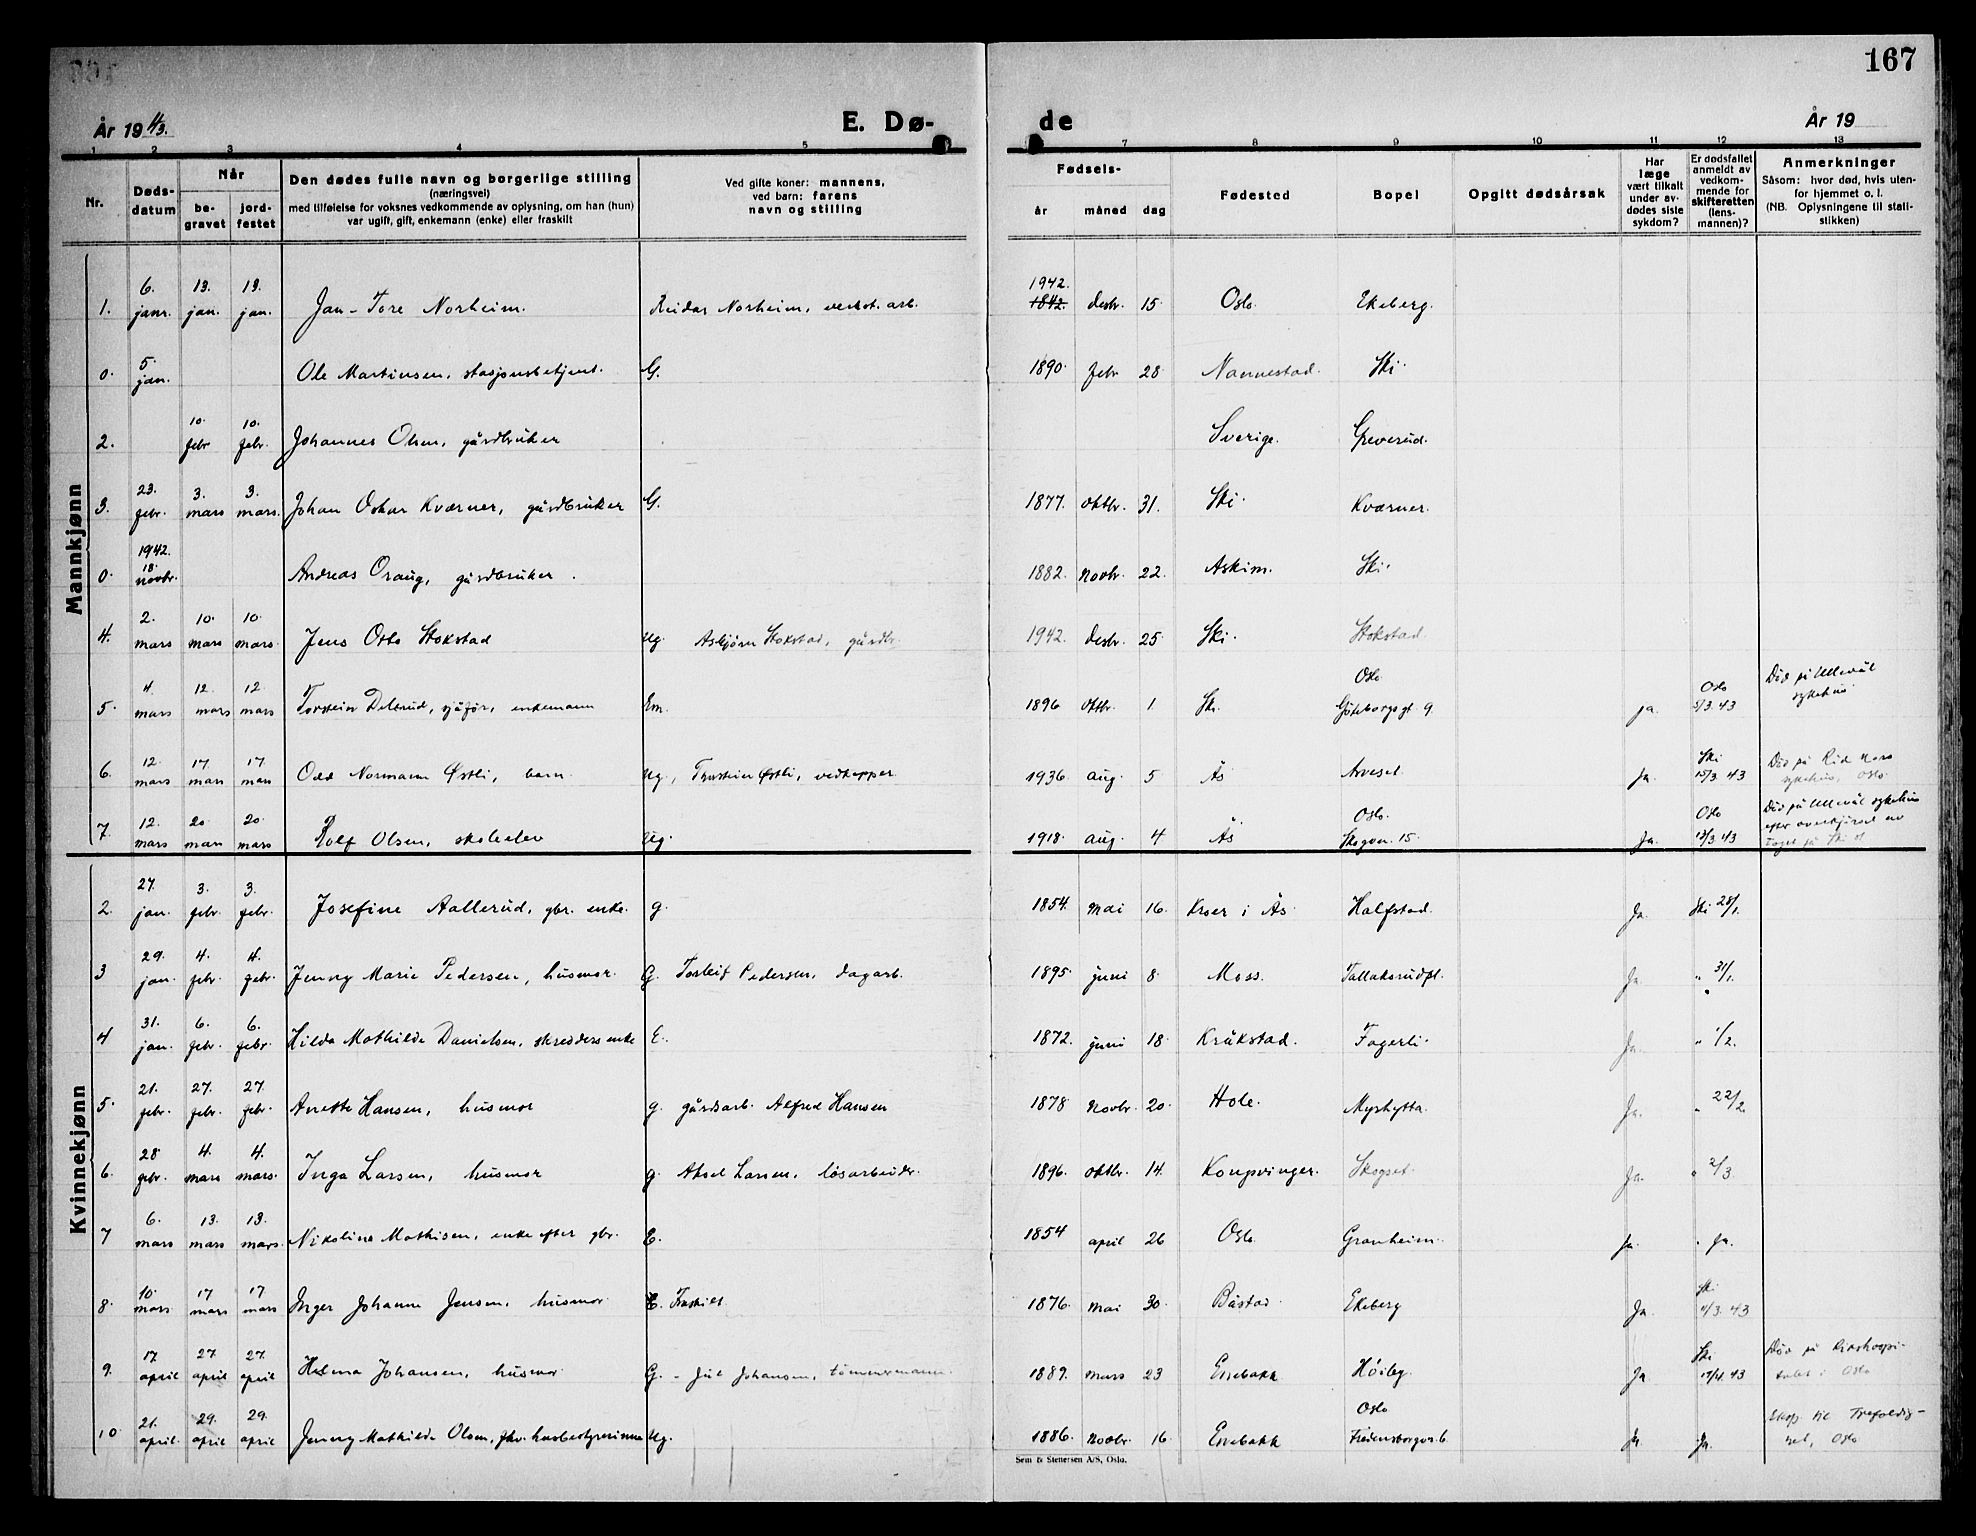 167
År 1943.
E. Dø- de
År 19
1 2 3 4 5 7 8 9 10 11 12 13
Nr.
Døds-
datum
Når
be-
gravet
jord-
festet
Den dødes fulle navn og borgerlige stilling
(næringsvei)
med tilføielse for voksnes vedkommende av oplysning, om han (hun)
var ugift, gift, enkemann (enke) eller fraskilt
Ved gifte koner: mannens,
ved barn: farens
navn og stilling
Fødsels-
år måned dag
Fødested
Bopel
Opgitt dødsårsak
Har
læge
vært tilkalt
under av-
dødes siste
sykdom?
Er dødsfallet
anmeldt av
vedkom-
mende for
skifteretten
(lens-
mannen)?
Anmerkninger
Såsom: hvor død, hvis uten-
for hjemmet o. l.
(NB. Oplysningene til stati-
stikken)
Mannkjønn
1. 6. janr. 13. jan. 13. jan. Jan-Tore Norheim. Reidar Norheim, verkst. arb. 1942. 1842. desbr. 15 Oslo. Ekeberg.
0. 5. jan. Ole Martinsen, stasjonsbetjent. G. 1890. febr 28 Nannestad. Ski.
2. 10. febr 10. febr. Johannes Olsen, gårdbruker Sverige. Greverud.
3. 23. febr. 3. mars 3. mars. Johan Oskar Kværner, gårdbruker G. 1877. oktbr. 31. Ski Kværner.
0. 1942. 18. novbr. Andreas Oraug, gårdbruker. 1882. novbr. 22. Askim. Ski.
4. 2. mars 10. mars 10. mars. Jens Otto Stokstad Ug. Asbjørn Stokstad, gårdbr. 1942. desbr. 25 Ski. Stokstad.
5. 4. mars 12. mars 12 mars Torstein Delerud, sjåfør, enkemann Em. 1896 oktbr. 1 Ski. Oslo Göteborggt 9. ja. Oslo 5/3.43 Död på Ullevål sykehus
6. 12. mars 17. mars 17. mars Odd Normann Østli, barn. Ug., Torstein Østli, vedkapper 1936. aug. 5 Ås Arveset. Ja. Ski 15/3 43 Död på Röde Kors sykehus, Oslo.
7. 12. mars 20 mars 20 mars Rolf Olsen, skoleelev Ug. 1918. aug. 4 Ås Oslo. Skogvn. 15. Ja. Oslo 13/3 43 Död på Ullevål sykehus efter overkjørsel av toget på Ski st
Kvinnekjønn
2. 27. jan. 3. febr. 3. febr. Josefine Aallerud, gbr. enke. g. 1854. Mai 16. Kroer i Ås Halfstad. Ja. Ski 28/1.
3 29. jan. 4. febr. 4. febr. Jenny Marie Pedersen, husmor. G. Torleif Pedersen, dagarb. 1895. juni 8. Moss. Tallaksrudpl. Ja. " 31/1.
4 31. jan. 6. febr. 6. febr. Hilda Mathilde Danielsen, skredders enke E. 1872. juni 18. Kråkstad. Fagerli. Ja. " 1/2.
5. 21. febr. 27. febr. 27. febr. Anette Hansen, husmor g. gårdsarb. Alfred Hansen 1878 Novbr. 20. Hole. Myrhytta. Ja. " 22/2.
6. 28 febr. 4. mars 4. mars. Inga Larsen, husmor g. Aksel Larsen, løsarbeider. 1896. oktbr. 14. Kongsvinger. Skogset. Ja. " 2/3.
7 6. mars 13. mars 13. mars. Nikoline Mathisen, enke efter gbr. E. 1854 april 26 Oslo. Granheim. Ja. " Ja.
8. 10. mars 17 mars 17 mars Inger Johanne Jensen, husmor. E. Fraskilt 1876. Mai 30. Båstad. Ekeberg Ja. Ski 11/3.43
9. 17. april 27. april 27. april Helma Johansen, husmor. G. - Jul Johansen, tömmermann. 1889. Mars 23 Enebakk Höiby. Ja Ski 17/4.43 Död på Rikshospitalet i Oslo
10 21. april. 29. april 29. april Jenny Mathilde Olsen, fhv. husbestyrerinne Ug. 1886. Novbr. 16. Enebakk Oslo Fredensborgvn. 6. Ja. Ja. Eksp. til Trefoldighet, Oslo
Sem & Stenersen A/S, Oslo.